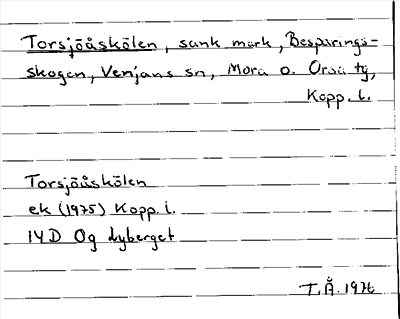 Torsjöåskölen, sank mark, Besparings-
skogen, Venjans sn, Mora o. Orsa tg,
Kopp. l.
Torsjöåskölen
ek (1975) Kopp. l.
14D Og Lyberget
T. Å. 1976